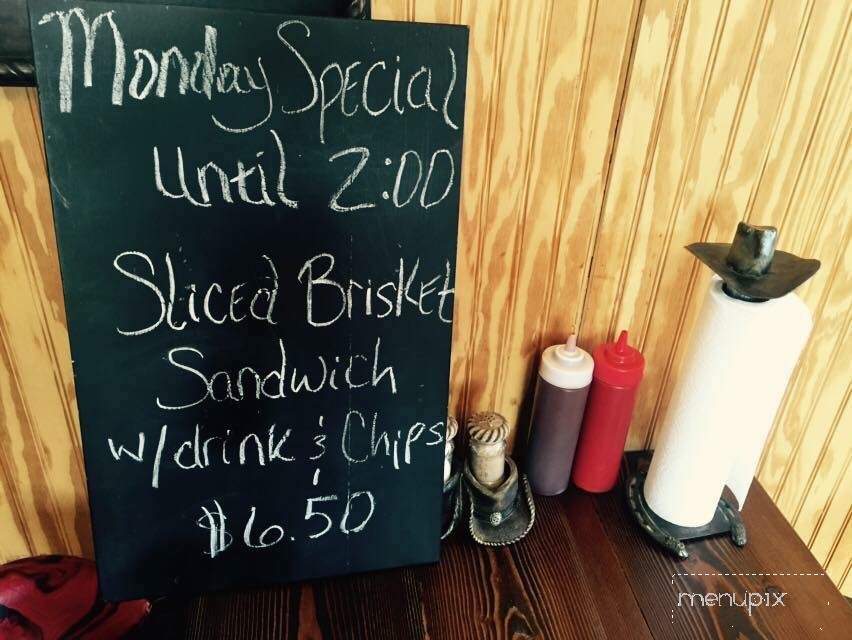 Monday Special
until 2:00
Sliced Brisket
Sandwich
w/drink & Chips
$6.50
menupix